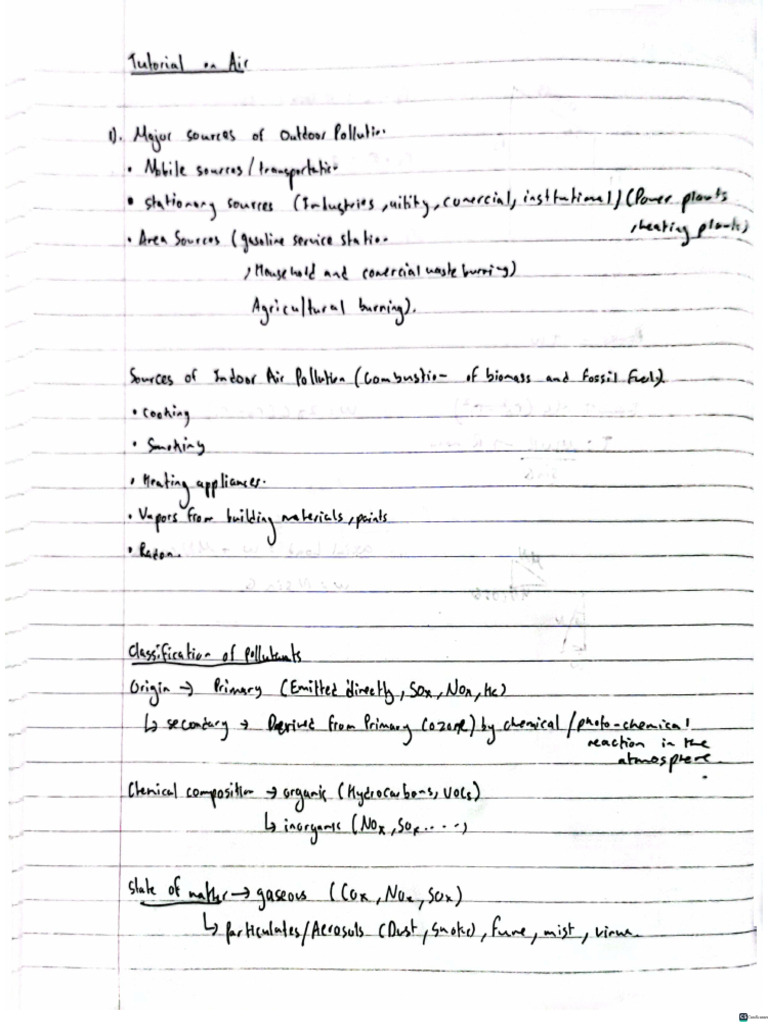 Tutorial on Air
1). Major sources of Outdoor Pollution.
• Mobile sources/transportation
• Stationary sources (Industries, uility, comercial, institutional) (Power plants
, heating plants)
• Area Sources (gasoline service station
, Household and comercial waste burning)
Agricultural burning).
Sources of Indoor Air Pollution (Combustion of biomass and Fossil Fuels).
• Cooking
• Smoking
• Heating appliances.
• Vapors from building materials, paints
• Radon.
Classification of pollutants
Origin → Primary (Emitted directly, SOx, NOx, HC)
↳ secondary → Derived from Primary (ozone) by chemical/photo-chemical
reaction in the
atmosphere.
Chemical composition → organic (Hydrocarbons, VOCs)
↳ inorganic (NOx, SOx....)
State of matter → gaseous (COx, NOx, SOx)
↳ particulates/Aerosols (Dust, smoke), fume, mist, virus.
CS CamScanner